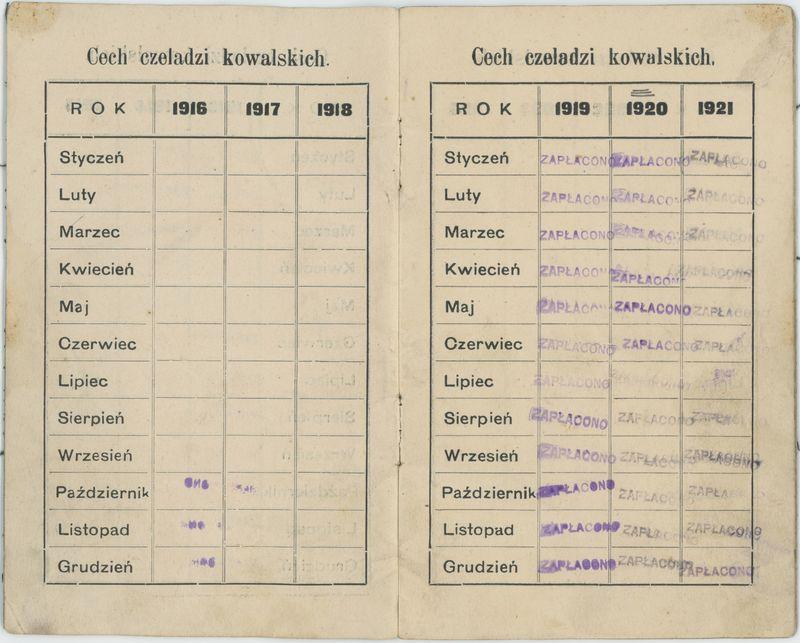 Cech czeladzi kowalskich.
ROK 1916 1917 1918
Styczeń
Luty
Marzec
Kwiecień
Maj
Czerwiec
Lipiec
Sierpień
Wrzesień
Październik
Listopad
Grudzień
Cech czeladzi kowalskich.
ROK 1919 1920 1921
Styczeń ZAPŁACONO ZAPŁACONO ZAPŁACONO
Luty ZAPŁACONO ZAPŁACONO ZAPŁACONO
Marzec ZAPŁACONO ZAPŁACONO ZAPŁACONO
Kwiecień ZAPŁACONO ZAPŁACONO ZAPŁACONO
Maj ZAPŁACONO ZAPŁACONO ZAPŁACONO
Czerwiec ZAPŁACONO ZAPŁACONO ZAPŁACONO
Lipiec ZAPŁACONO
Sierpień ZAPŁACONO ZAPŁACONO ZAPŁACONO
Wrzesień ZAPŁACONO ZAPŁACONO ZAPŁACONO
Październik ZAPŁACONO ZAPŁACONO ZAPŁACONO
Listopad ZAPŁACONO ZAPŁACONO ZAPŁACONO
Grudzień ZAPŁACONO ZAPŁACONO ZAPŁACONO